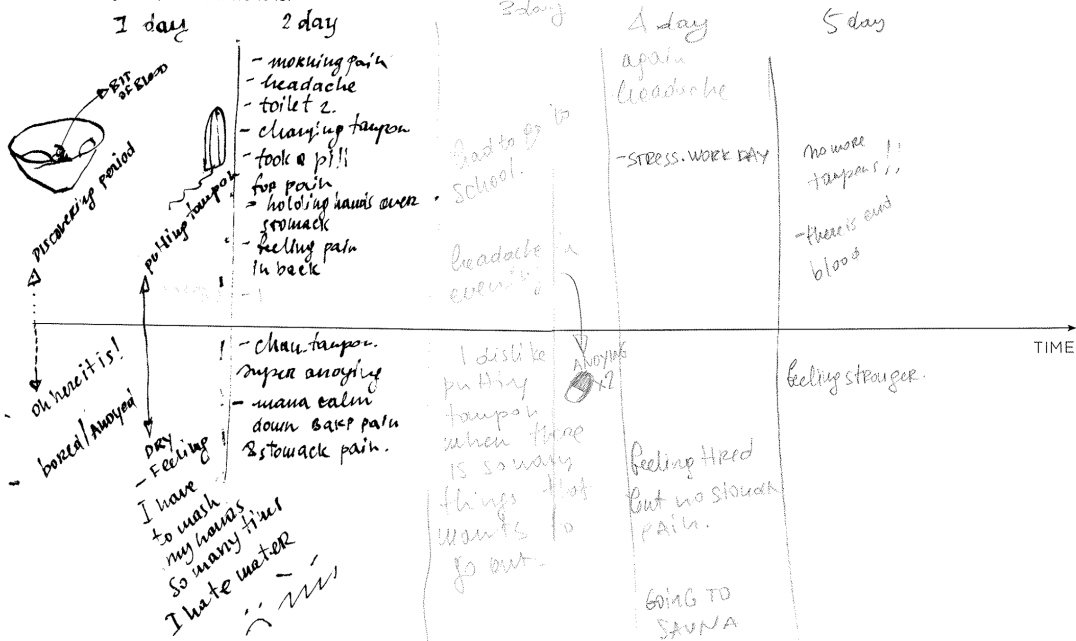 1 day
BIT
OF BLOOD
DISCOVERING period
putting tampon
oh here it is!
- bored/Anoyed
DRY
- Feeling
I have
to wash
my hands
so many times
I hate water
2 day
- morning pain
- headache
- toilet 2.
- changing tampon
- took a pill
for pain
- holding hands over
stomack
- feeling pain
in back
- chan. tampon.
super anoying
- wana calm
down back pain
& stomack pain.
3 day
had to go to
school.
headache in
evening
ANOYING
x2
I dislike
putting
tampon
when there
is so many
things that
wants to
go out.
4 day
again
headache
- STRESS. WORK DAY
feeling tired
but no stomack
pain.
GOING TO
SAUNA
5 day
no more
tampons!!
- there is end
blood
TIME
feeling stronger.